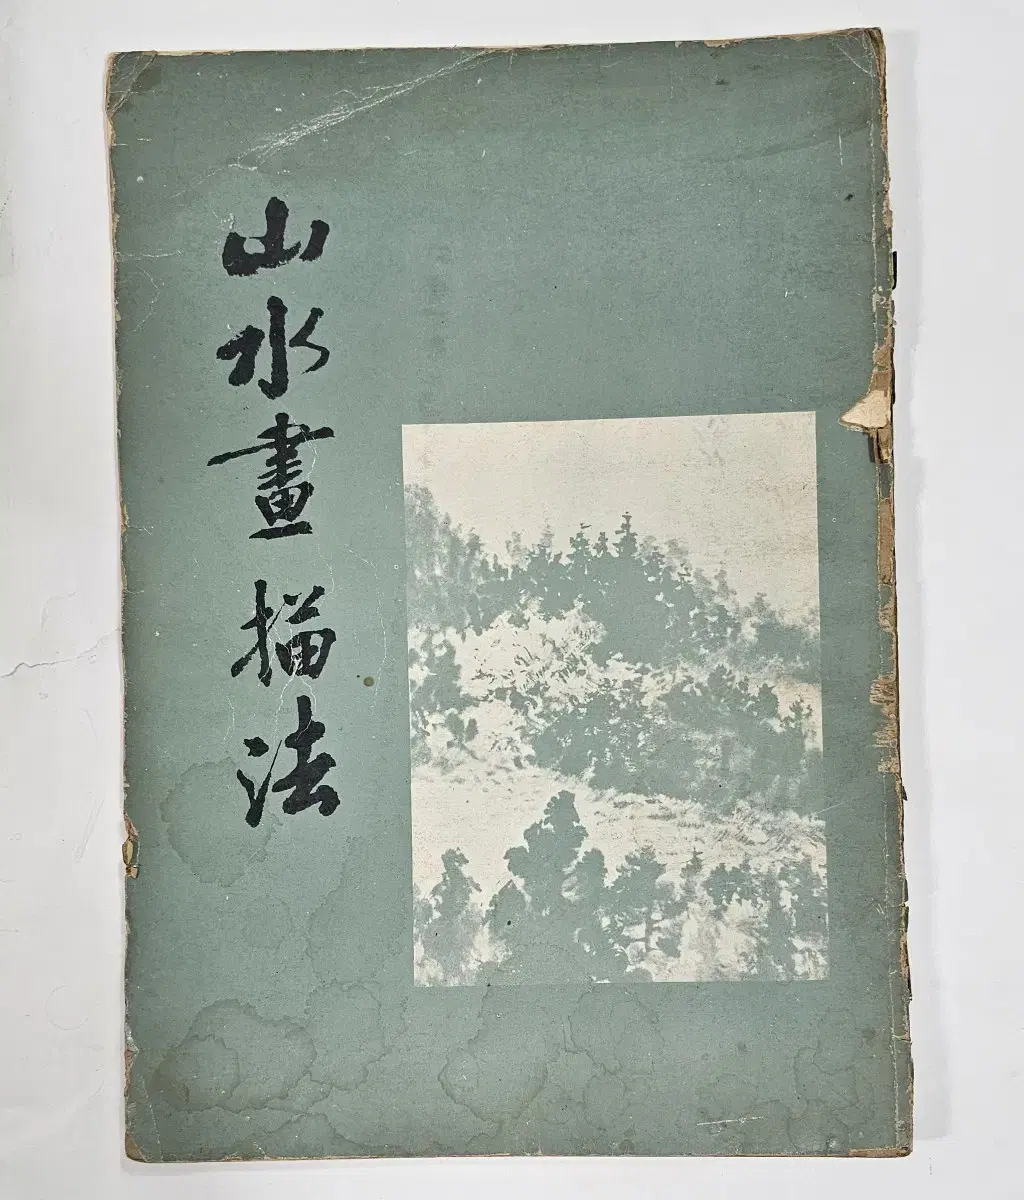 山水畫描法